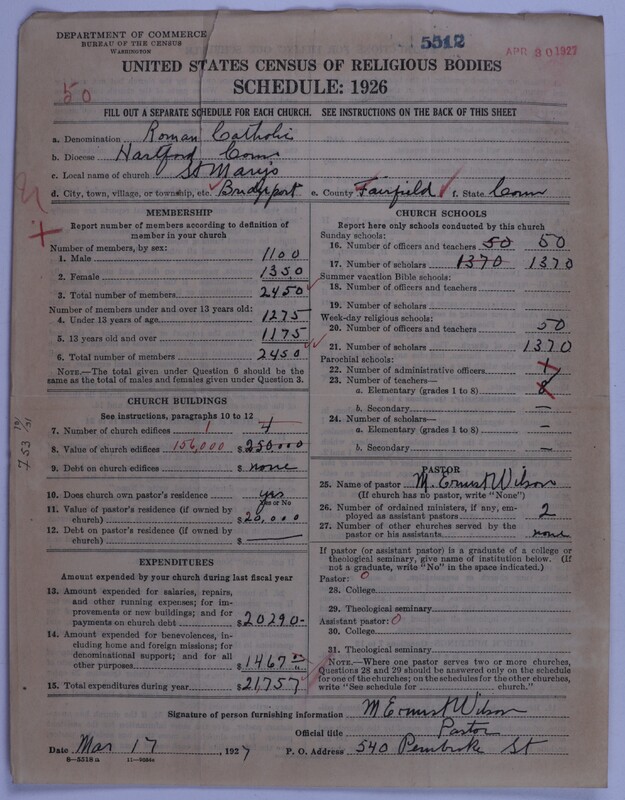 DEPARTMENT OF COMMERCE
BUREAU OF THE CENSUS
WASHINGTON
5512
APR 30 1927
UNITED STATES CENSUS OF RELIGIOUS BODIES
SCHEDULE: 1926
50
FILL OUT A SEPARATE SCHEDULE FOR EACH CHURCH. SEE INSTRUCTIONS ON THE BACK OF THIS SHEET
a. Denomination Roman Catholic
b. Diocese Hartford Conn
c. Local name of church St Marys
d. City, town, village, or township, etc. Bridgeport e. County Fairfield f. State Conn
MEMBERSHIP
Report number of members according to definition of
member in your church
Number of members, by sex:
1. Male 1100
2. Female 1350
3. Total number of members 2450
Number of members under and over 13 years old:
4. Under 13 years of age 1275
5. 13 years old and over 1175
6. Total number of members 2450
NOTE.—The total given under Question 6 should be
same as the total of males and females given under Question 3.
CHURCH BUILDINGS
See instructions, paragraphs 10 to 12
7. Number of church edifices 1 4
8. Value of church edifices 156,000 $ 250000
9. Debt on church edifices $ none
10. Does church own pastor's residence yes
Yes or No
11. Value of pastor's residence (if owned by
church) $ 20,000
12. Debt on pastor's residence (if owned by
church) $ —
EXPENDITURES
Amount expended by your church during last fiscal year
13. Amount expended for salaries, repairs,
and other running expenses; for im-
provements or new buildings; and for
payments on church debt $ 20290-
14. Amount expended for benevolences, in-
cluding home and foreign missions; for
denominational support; and for all
other purposes $ 1467
15. Total expenditures during year $ 21,757
CHURCH SCHOOLS
Report here only schools conducted by this church
Sunday schools:
16. Number of officers and teachers 50 50
17. Number of scholars 1370 1370
Summer vacation Bible schools:
18. Number of officers and teachers
19. Number of scholars
Week-day religious schools:
20. Number of officers and teachers 50
21. Number of scholars 1370
Parochial schools:
22. Number of administrative officers
23. Number of teachers—
a. Elementary (grades 1 to 8) 8
b. Secondary —
24. Number of scholars—
a. Elementary (grades 1 to 8) —
b. Secondary —
PASTOR
25. Name of pastor M. Ernest Wilson
(If church has no pastor, write "None")
26. Number of ordained ministers, if any, em-
ployed as assistant pastors 2
27. Number of other churches served by the
pastor or his assistants none
If pastor (or assistant pastor) is a graduate of a college or
theological seminary, give name of institution below. (If
not a graduate, write "No" in the space indicated.)
Pastor: 0
28. College
29. Theological seminary
Assistant pastor: 0
30. College
31. Theological seminary
NOTE.—Where one pastor serves two or more churches,
Questions 28 and 29 should be answered only on the schedule
for one of the churches; on the schedules for the other churches,
write "See schedule for church."
Signature of person furnishing information M Ernest Wilson
Official title Pastor
Date Mar 17, 1927 P. O. Address 540 Pembroke St
8—5318 a